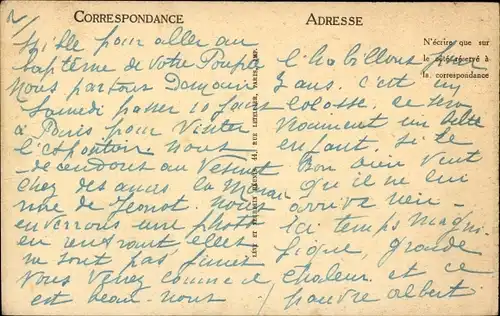 2/
CORRESPONDANCE
ADRESSE
N'écrire que sur
le côté réservé à
la correspondance
sible pour aller au
baptême de votre Poupée
Nous partons Demain
Samedi passer 10 jours
à Paris pour visiter
l'exposition nous
descendons au Vesinet
chez des amis la
de Jeanot. nous
enverrons une photo
en rentrant, elles
ne sont pas finies
Vous verez comme il
est beau. nous
l'habillons
3 ans. c'est un
colosse. ce sera
vraiment un belle
enfant. si le
Bon Dieu veut
qu'il ne lui
arrive rien
ici temps magni
fique, grande
chaleur. et ce
pauvre albert